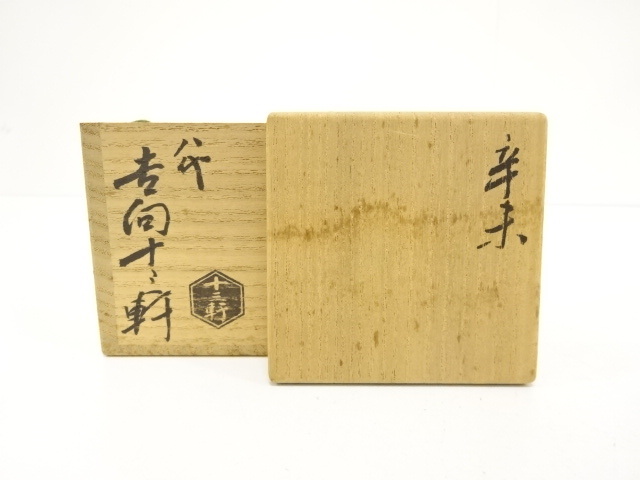 辛未
八代
吉向十三軒
十三軒